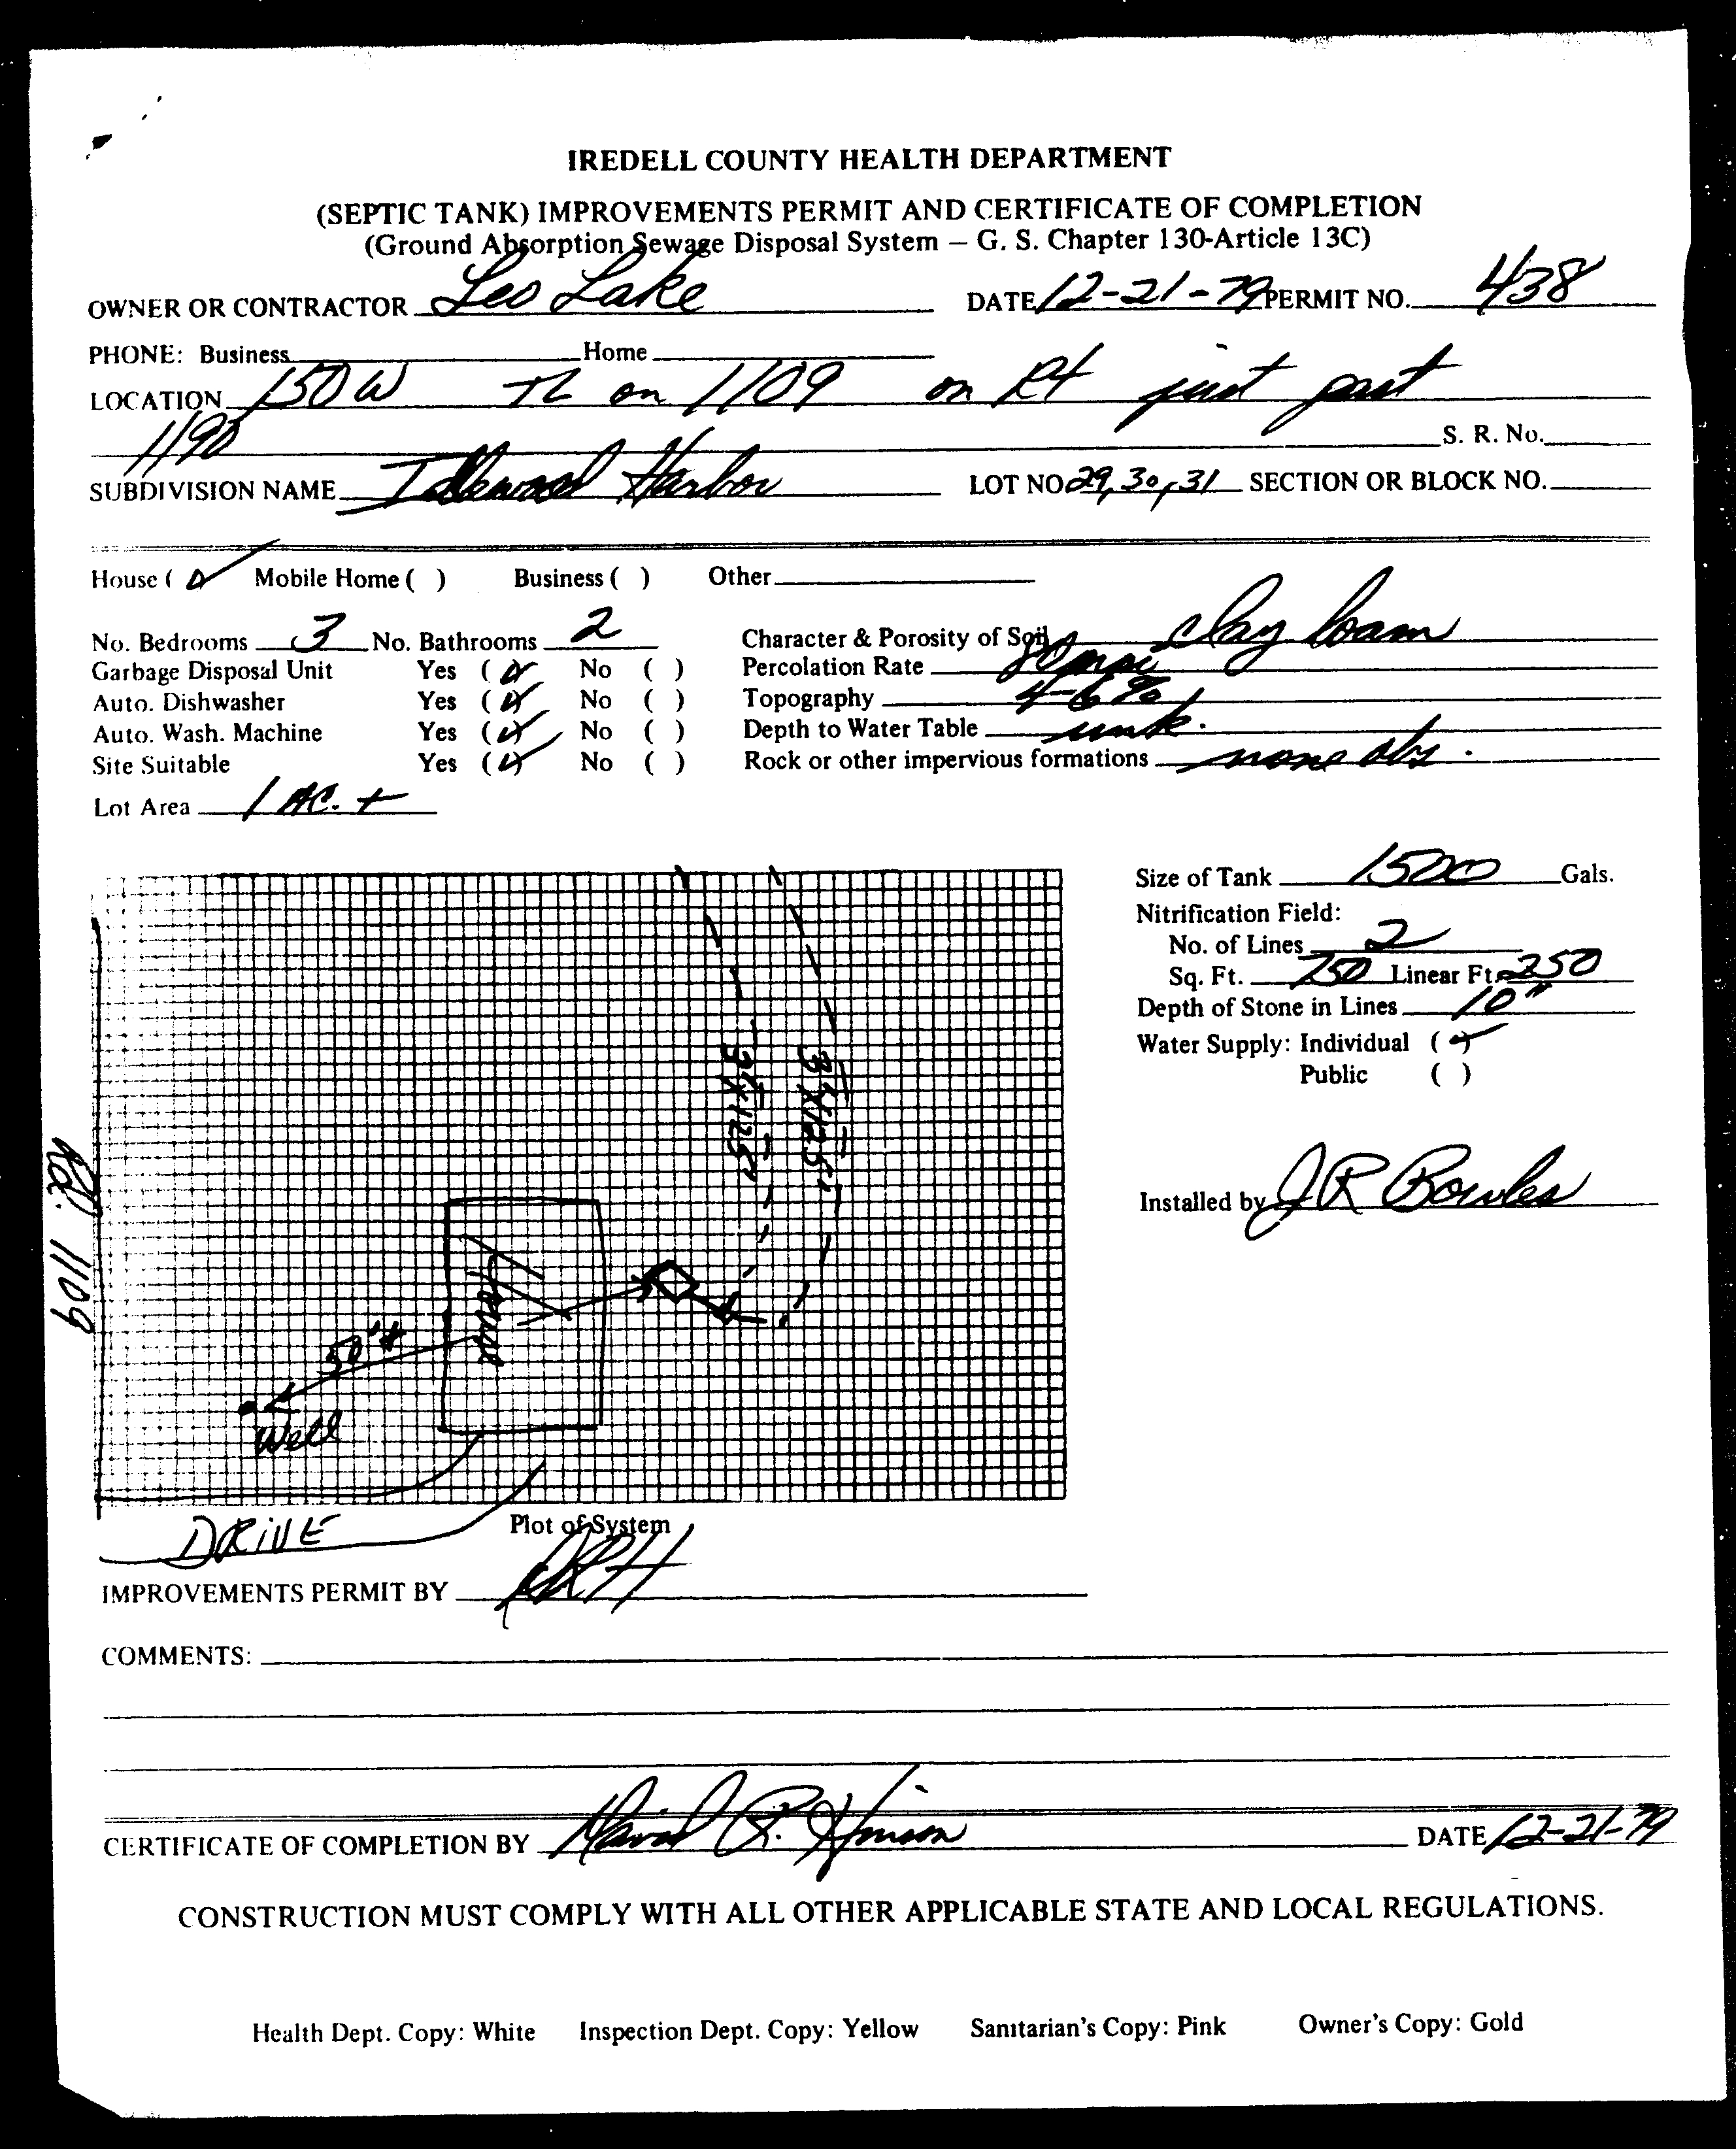 IREDELL COUNTY HEALTH DEPARTMENT
(SEPTIC TANK) IMPROVEMENTS PERMIT AND CERTIFICATE OF COMPLETION
(Ground Absorption Sewage Disposal System – G. S. Chapter 130-Article 13C)
OWNER OR CONTRACTOR Leo Lake DATE 12-21-79 PERMIT NO. 438
PHONE: Business Home
LOCATION 150 W TL on 1109 on Rt just past
1190 S. R. No.
SUBDIVISION NAME Idlewood Harbor LOT NO 29, 30, 31 SECTION OR BLOCK NO.
House ( ) Mobile Home ( ) Business ( ) Other
No. Bedrooms 3 No. Bathrooms 2 Character & Porosity of Soil clay loam
Garbage Disposal Unit Yes ( ) No ( ) Percolation Rate mpi
Auto. Dishwasher Yes ( ) No ( ) Topography 4-6%
Auto. Wash. Machine Yes ( ) No ( ) Depth to Water Table unk.
Site Suitable Yes ( ) No ( ) Rock or other impervious formations none obs.
Lot Area 1 AC. +
Size of Tank 1500 Gals.
Nitrification Field:
No. of Lines 2
Sq. Ft. 750 Linear Ft. 250
Depth of Stone in Lines 10"
Water Supply: Individual ( )
Public ( )
Installed by J R Bowles
3'X125'
3'X125'
Rd. 1109
House
50'+
Well
DRIVE
Plot of System
IMPROVEMENTS PERMIT BY DRH
COMMENTS:
CERTIFICATE OF COMPLETION BY David R. Hinson DATE 12-21-79
CONSTRUCTION MUST COMPLY WITH ALL OTHER APPLICABLE STATE AND LOCAL REGULATIONS.
Health Dept. Copy: White Inspection Dept. Copy: Yellow Sanitarian's Copy: Pink Owner's Copy: Gold